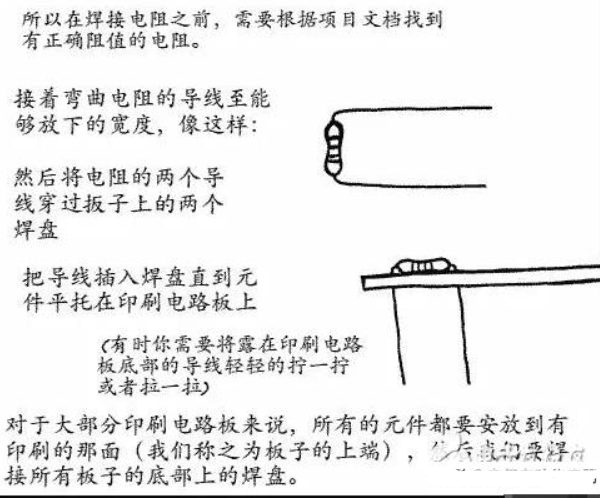 所以在焊接电阻之前，需要根据项目文档找到
有正确阻值的电阻。
接着弯曲电阻的导线至能
够放下的宽度，像这样：
然后将电阻的两个导
线穿过扳子上的两个
焊盘
把导线插入焊盘直到元
件平托在印刷电路板上
（有时你需要将露在印刷电路
板底部的导线轻轻的拧一拧
或者拉一拉）
对于大部分印刷电路板来说，所有的元件都要安放到有
印刷的那面（我们称之为板子的上端），然后我们要焊
接所有板子的底部上的焊盘。